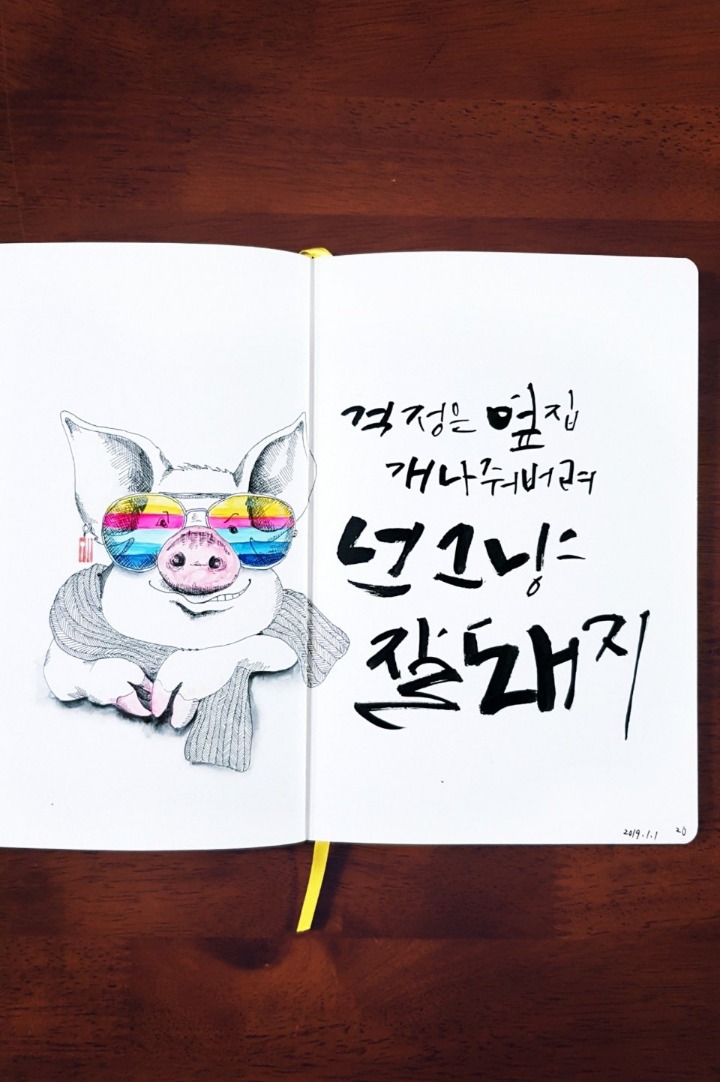 걱정은 옆집
개나 줘버려
넌 그냥
잘돼지
2019.1.1 20